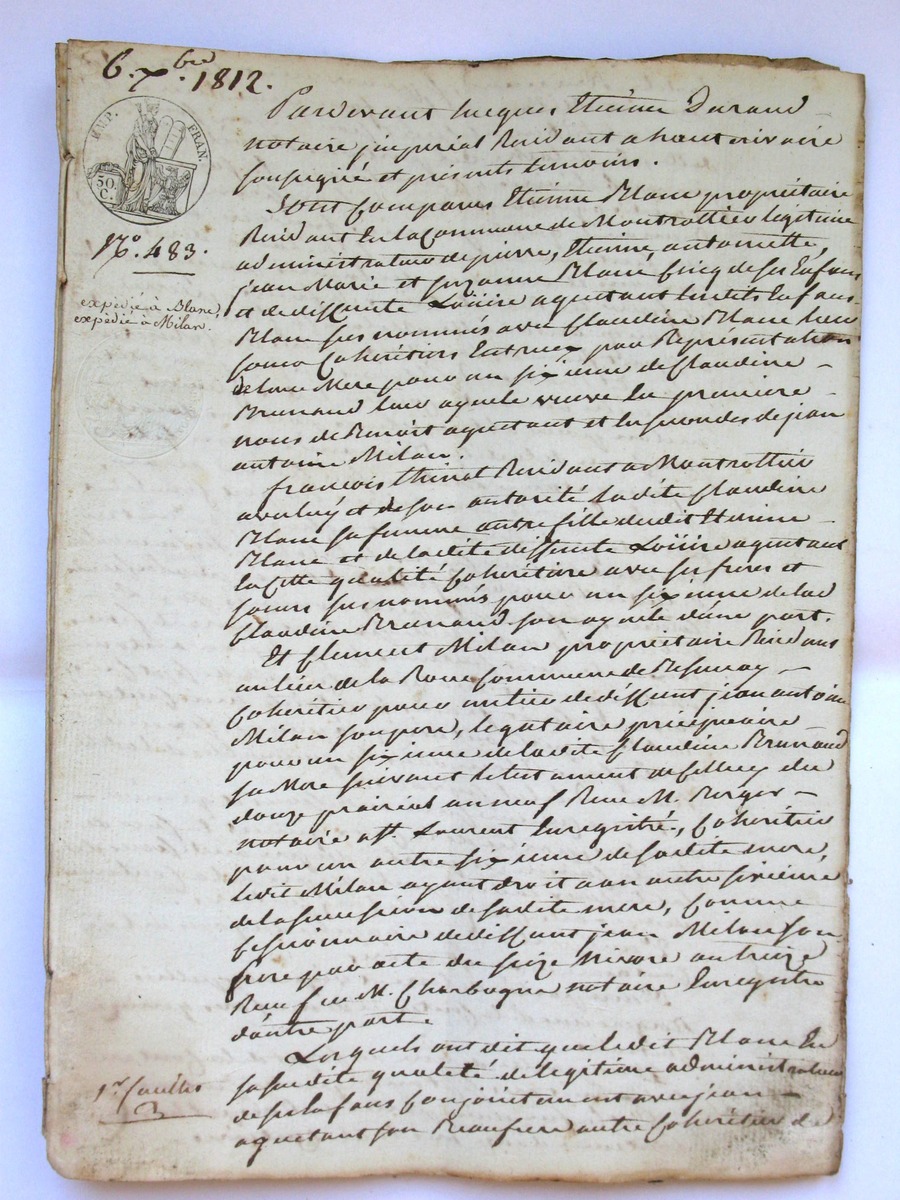 6. Xbre 1812.
EMP. FRAN.
50. C.
N°. 483.
expédié à Blanc,
expédié à Milan.
Pardevant Jacques Etienne Durand
notaire impérial Résidant a haut rivoire
soussigné et présents témoins.
Sont Comparus Etienne Blanc propriétaire
Résidant En la Commune de Montrottier légitime
administrateur de pierre, Etienne, antoinette,
jean Marie et suzanne Blanc, Cinq de ses Enfans
et de deffunte Loüise aguetant lesdits Enfans
Blanc sus nommés avec Claudine Blanc leur
soeur Cohéritiers Entreux par Représentation
de leur Mere pour un sixieme de Claudine
Brunaud leur ayeule veuve En premiere
nous de Benoit aguetant et En secondes de jean
antoine Milan.
françois Résidant a Montrottier
et de son autorité Ladite Claudine
Blanc sa femme autre fille dudit Etienne
Blanc et de ladite deffunte Loüise aguetant
En Cette qualité Cohéritiere avec ses freres et
soeurs sus nommés pour un sixieme de lad
Claudine Brunaud son ayeule d'une part.
Et Clement Milan propriétaire Résidant
au lieu de la Roue Commune de
Cohéritier pour un tiers de deffunt jean antoine
Milan son pere, légataire préciputaire
pour un sixieme de ladite Claudine Brunaud
sa Mere suivant le testament du
douze prairial an neuf Reçu M. Roger
notaire a St. Laurent Enregistré, Cohéritier
pour un autre sixieme de sadite mere,
ledit Milan ayant droit a un autre sixieme
de la succession de sadite mere, Comme
Cessionnaire de deffunt jean Milan son
frere par acte du seize Nivose an treize
Reçu M. Charbogne notaire Enregistré
d'autre part.
Lesquels ont dit que ledit Blanc En
sa susdite qualité de légitime administrateur
de ses Enfans Conjointement avec jean
aguetant son Beaufrere autre Cohéritier de
1er. feuillet